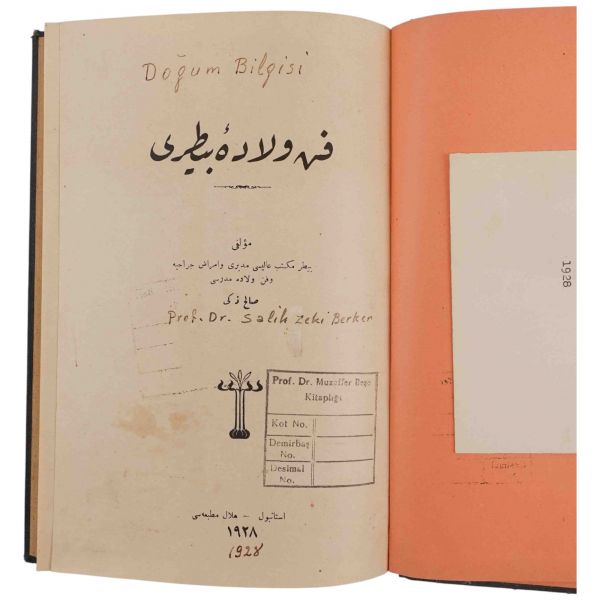 Doğum Bilgisi
فن ولادهٔ بیطری
مؤلفی
بیطر مكتب عالیسی مدیری وامراض جراحیه
وفن ولاده مدرسی
صالح زكی
Prof. Dr. Salih Zeki Berker
Prof. Dr. Muzaffer Bego
Kitaplığı
Kot No.
Demirbaş
No.
Desimal
No.
استانبول – هلال مطبعه‌سی
١٩٢٨
1928
1928